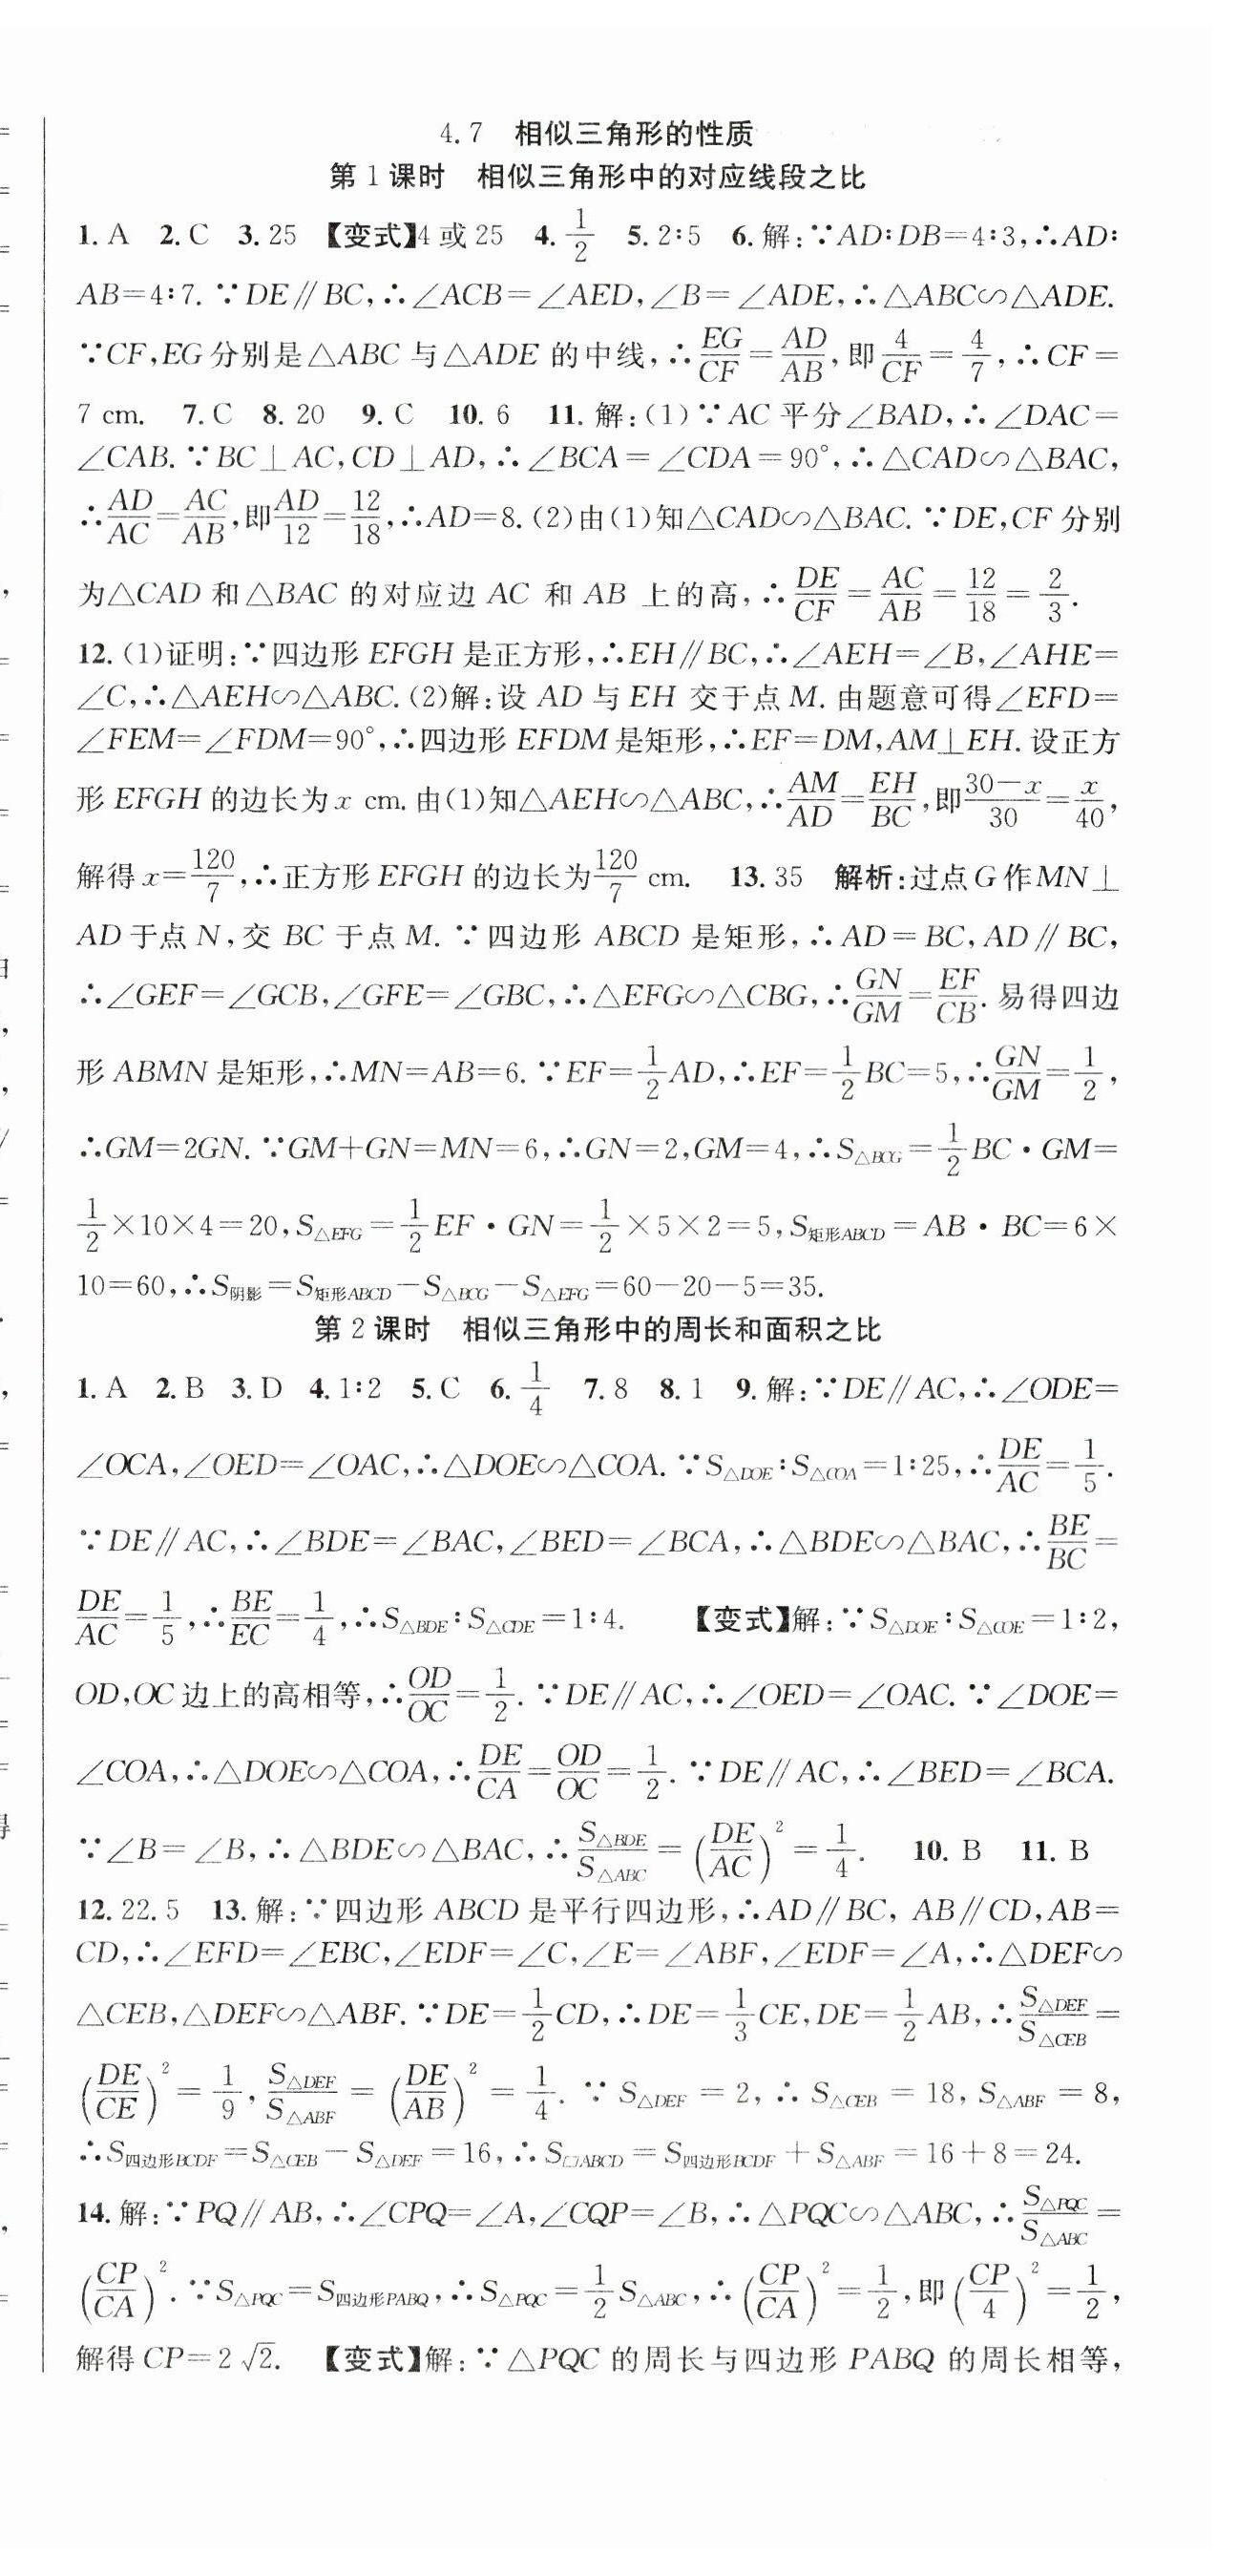 4.7 相似三角形的性质
第1课时 相似三角形中的对应线段之比
1. A 2. C 3. 25 【变式】4或25 4. 1/2 5. 2∶5 6. 解:∵AD∶DB=4∶3,∴AD∶
AB=4∶7. ∵DE∥BC,∴∠ACB=∠AED,∠B=∠ADE,∴△ABC∽△ADE.
∵CF,EG分别是△ABC与△ADE的中线,∴EG/CF=AD/AB,即4/CF=4/7,∴CF=
7 cm. 7. C 8. 20 9. C 10. 6 11. 解:(1)∵AC平分∠BAD,∴∠DAC=
∠CAB. ∵BC⊥AC,CD⊥AD,∴∠BCA=∠CDA=90°,∴△CAD∽△BAC,
∴AD/AC=AC/AB,即AD/12=12/18,∴AD=8. (2)由(1)知△CAD∽△BAC. ∵DE,CF分别
为△CAD和△BAC的对应边AC和AB上的高,∴DE/CF=AC/AB=12/18=2/3.
12. (1)证明:∵四边形EFGH是正方形,∴EH∥BC,∴∠AEH=∠B,∠AHE=
∠C,∴△AEH∽△ABC. (2)解:设AD与EH交于点M. 由题意可得∠EFD=
∠FEM=∠FDM=90°,∴四边形EFDM是矩形,∴EF=DM,AM⊥EH. 设正方
形EFGH的边长为x cm. 由(1)知△AEH∽△ABC,∴AM/AD=EH/BC,即(30-x)/30=x/40,
解得x=120/7,∴正方形EFGH的边长为120/7 cm. 13. 35 解析:过点G作MN⊥
AD于点N,交BC于点M. ∵四边形ABCD是矩形,∴AD=BC,AD∥BC,
∴∠GEF=∠GCB,∠GFE=∠GBC,∴△EFG∽△CBG,∴GN/GM=EF/CB. 易得四边
形ABMN是矩形,∴MN=AB=6. ∵EF=1/2AD,∴EF=1/2BC=5,∴GN/GM=1/2,
∴GM=2GN. ∵GM+GN=MN=6,∴GN=2,GM=4,∴S△BCG=1/2BC·GM=
1/2×10×4=20,S△EFG=1/2EF·GN=1/2×5×2=5,S矩形ABCD=AB·BC=6×
10=60,∴S阴影=S矩形ABCD-S△BCG-S△EFG=60-20-5=35.
第2课时 相似三角形中的周长和面积之比
1. A 2. B 3. D 4. 1∶2 5. C 6. 1/4 7. 8 8. 1 9. 解:∵DE∥AC,∴∠ODE=
∠OCA,∠OED=∠OAC,∴△DOE∽△COA. ∵S△DOE∶S△COA=1∶25,∴DE/AC=1/5.
∵DE∥AC,∴∠BDE=∠BAC,∠BED=∠BCA,∴△BDE∽△BAC,∴BE/BC=
DE/AC=1/5,∴BE/EC=1/4,∴S△BDE∶S△CDE=1∶4. 【变式】解:∵S△DOE∶S△COE=1∶2,
OD,OC边上的高相等,∴OD/OC=1/2. ∵DE∥AC,∴∠OED=∠OAC. ∵∠DOE=
∠COA,∴△DOE∽△COA,∴DE/CA=OD/OC=1/2. ∵DE∥AC,∴∠BED=∠BCA.
∵∠B=∠B,∴△BDE∽△BAC,∴S△BDE/S△ABC=(DE/AC)²=1/4. 10. B 11. B
12. 22.5 13. 解:∵四边形ABCD是平行四边形,∴AD∥BC, AB∥CD,AB=
CD,∴∠EFD=∠EBC,∠EDF=∠C,∠E=∠ABF,∠EDF=∠A,∴△DEF∽
△CEB,△DEF∽△ABF. ∵DE=1/2CD,∴DE=1/3CE,DE=1/2AB,∴S△DEF/S△CEB=
(DE/CE)²=1/9,S△DEF/S△ABF=(DE/AB)²=1/4. ∵S△DEF=2,∴S△CEB=18,S△ABF=8,
∴S四边形BCDF=S△CEB-S△DEF=16,∴S▱ABCD=S四边形BCDF+S△ABF=16+8=24.
14. 解:∵PQ∥AB,∴∠CPQ=∠A,∠CQP=∠B,∴△PQC∽△ABC,∴S△PQC/S△ABC=
(CP/CA)². ∵S△PQC=S四边形PABQ,∴S△PQC=1/2S△ABC,∴(CP/CA)²=1/2,即(CP/4)²=1/2,
解得CP=2√2. 【变式】解:∵△PQC的周长与四边形PABQ的周长相等,